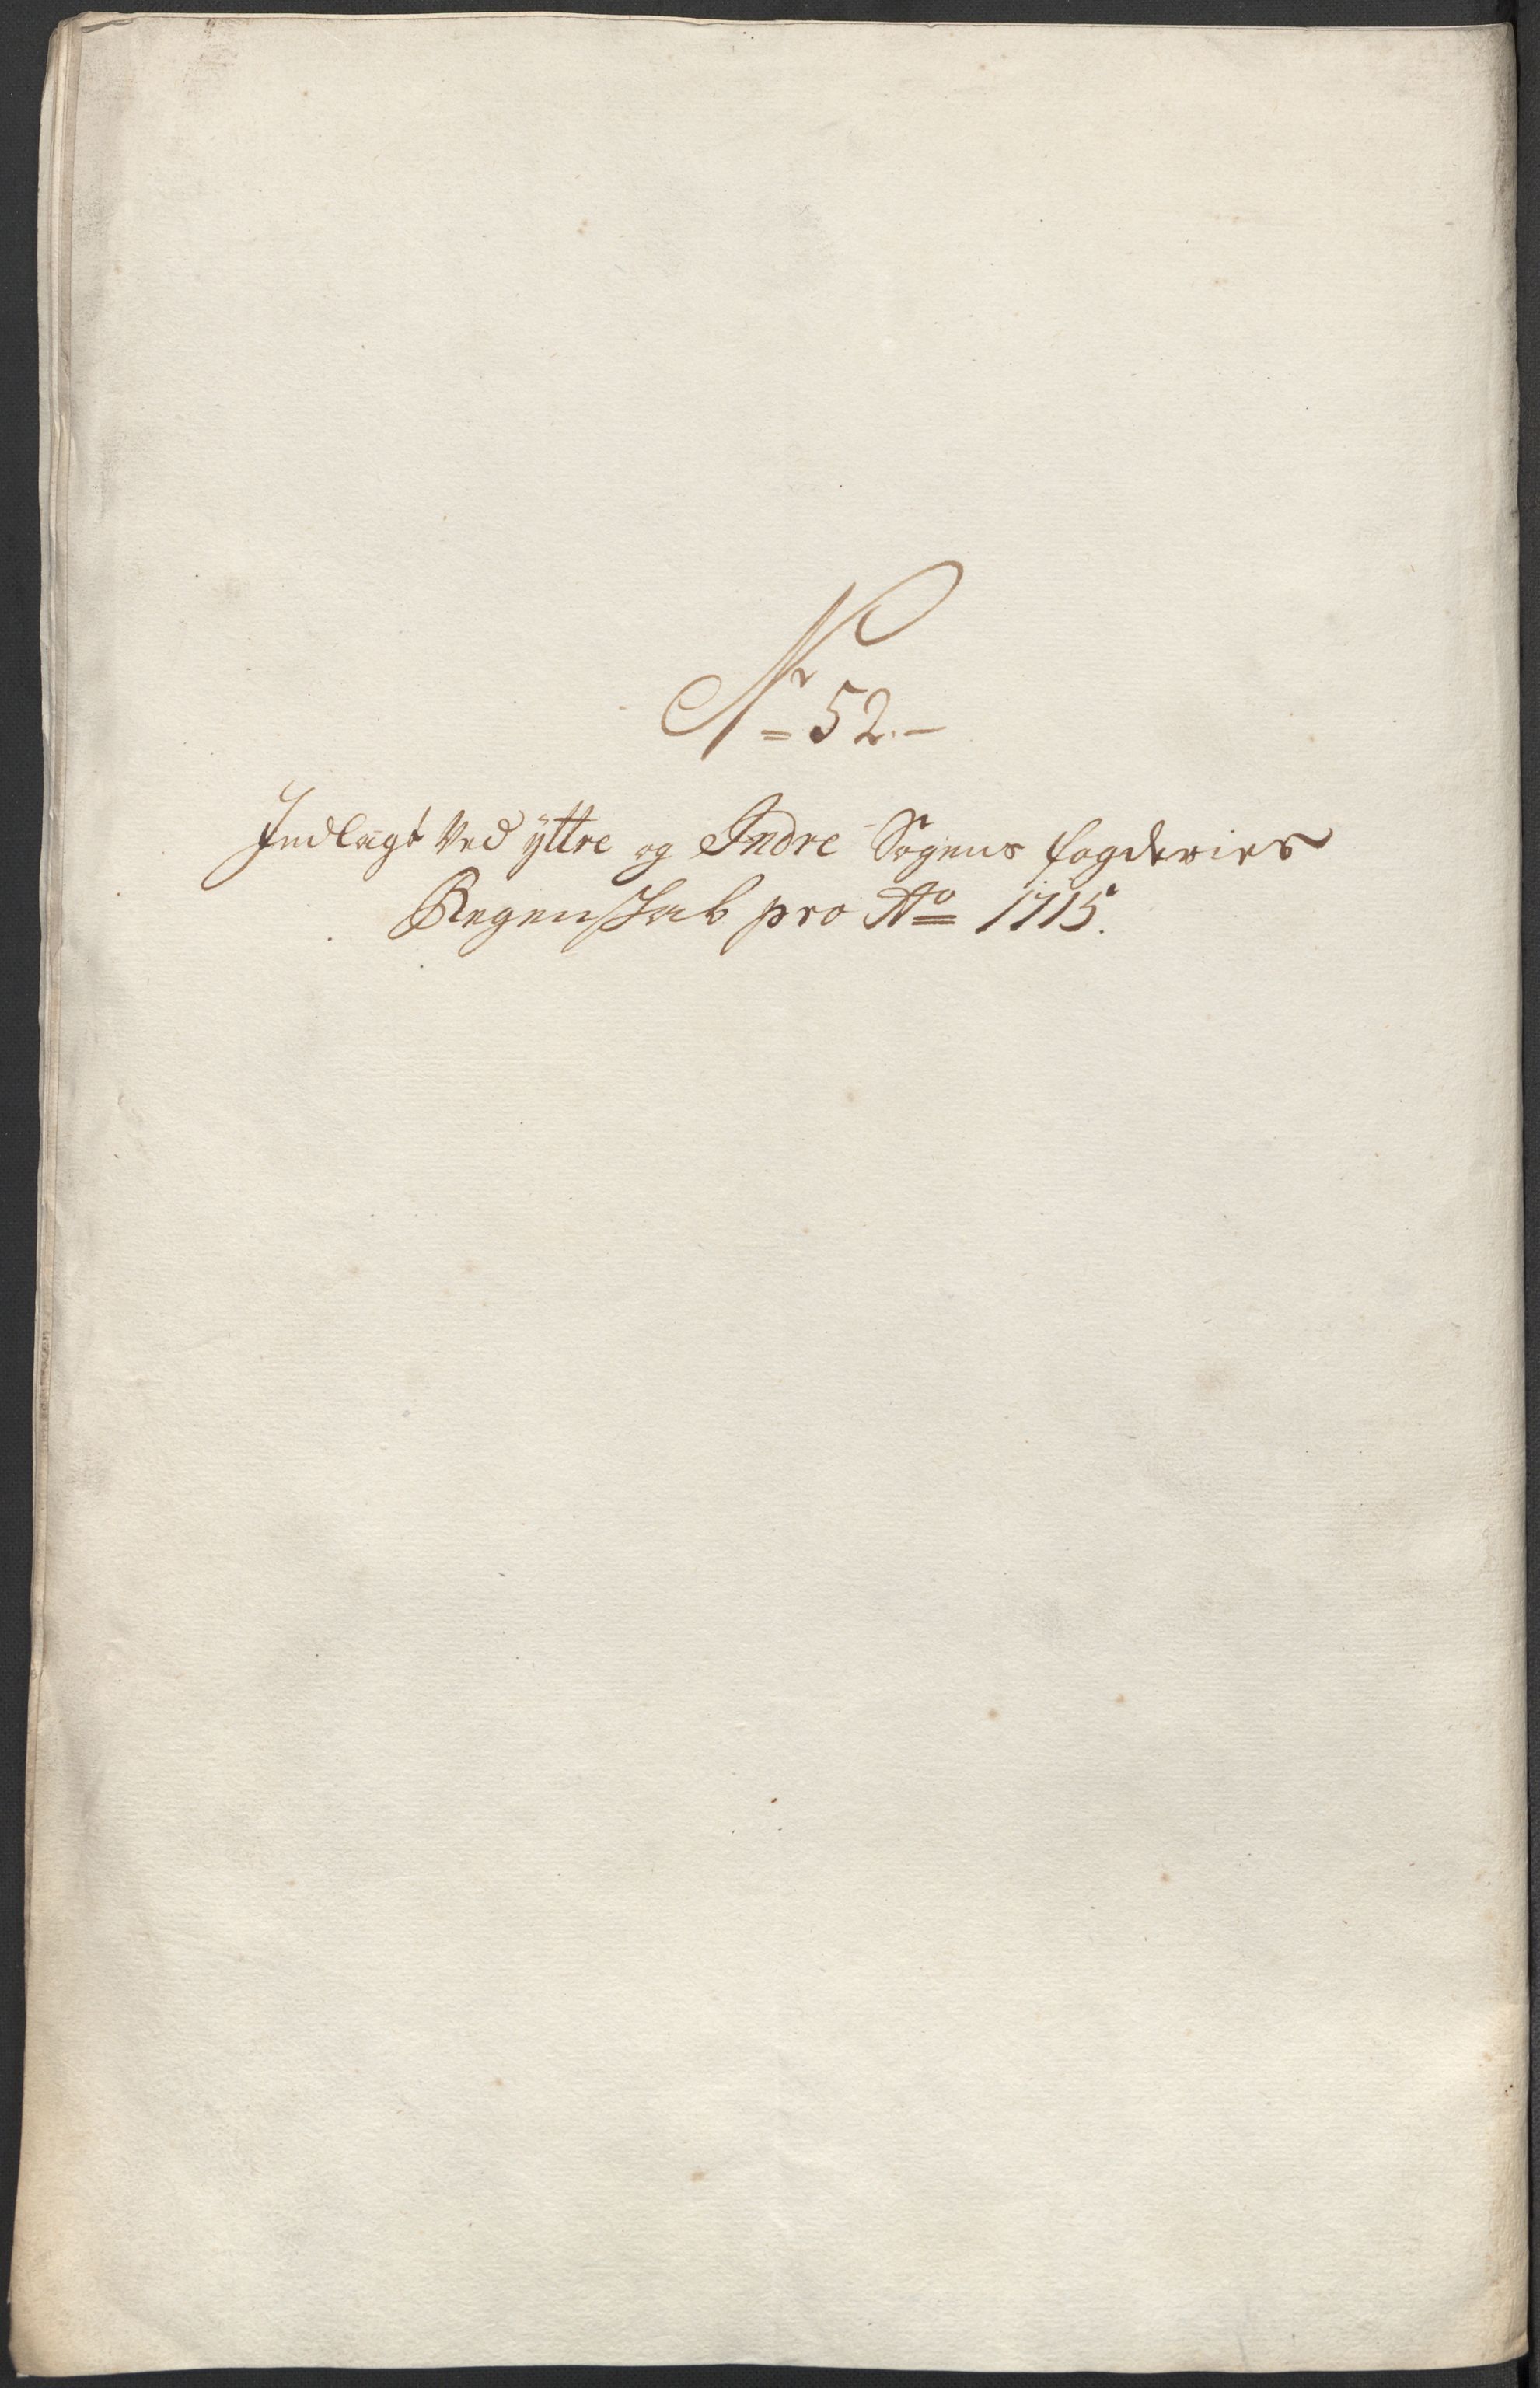 Nr 52.-
Indlagt Ved ÿttre og Indre Sogens fogderies
Regenskab pro Ao 1715.